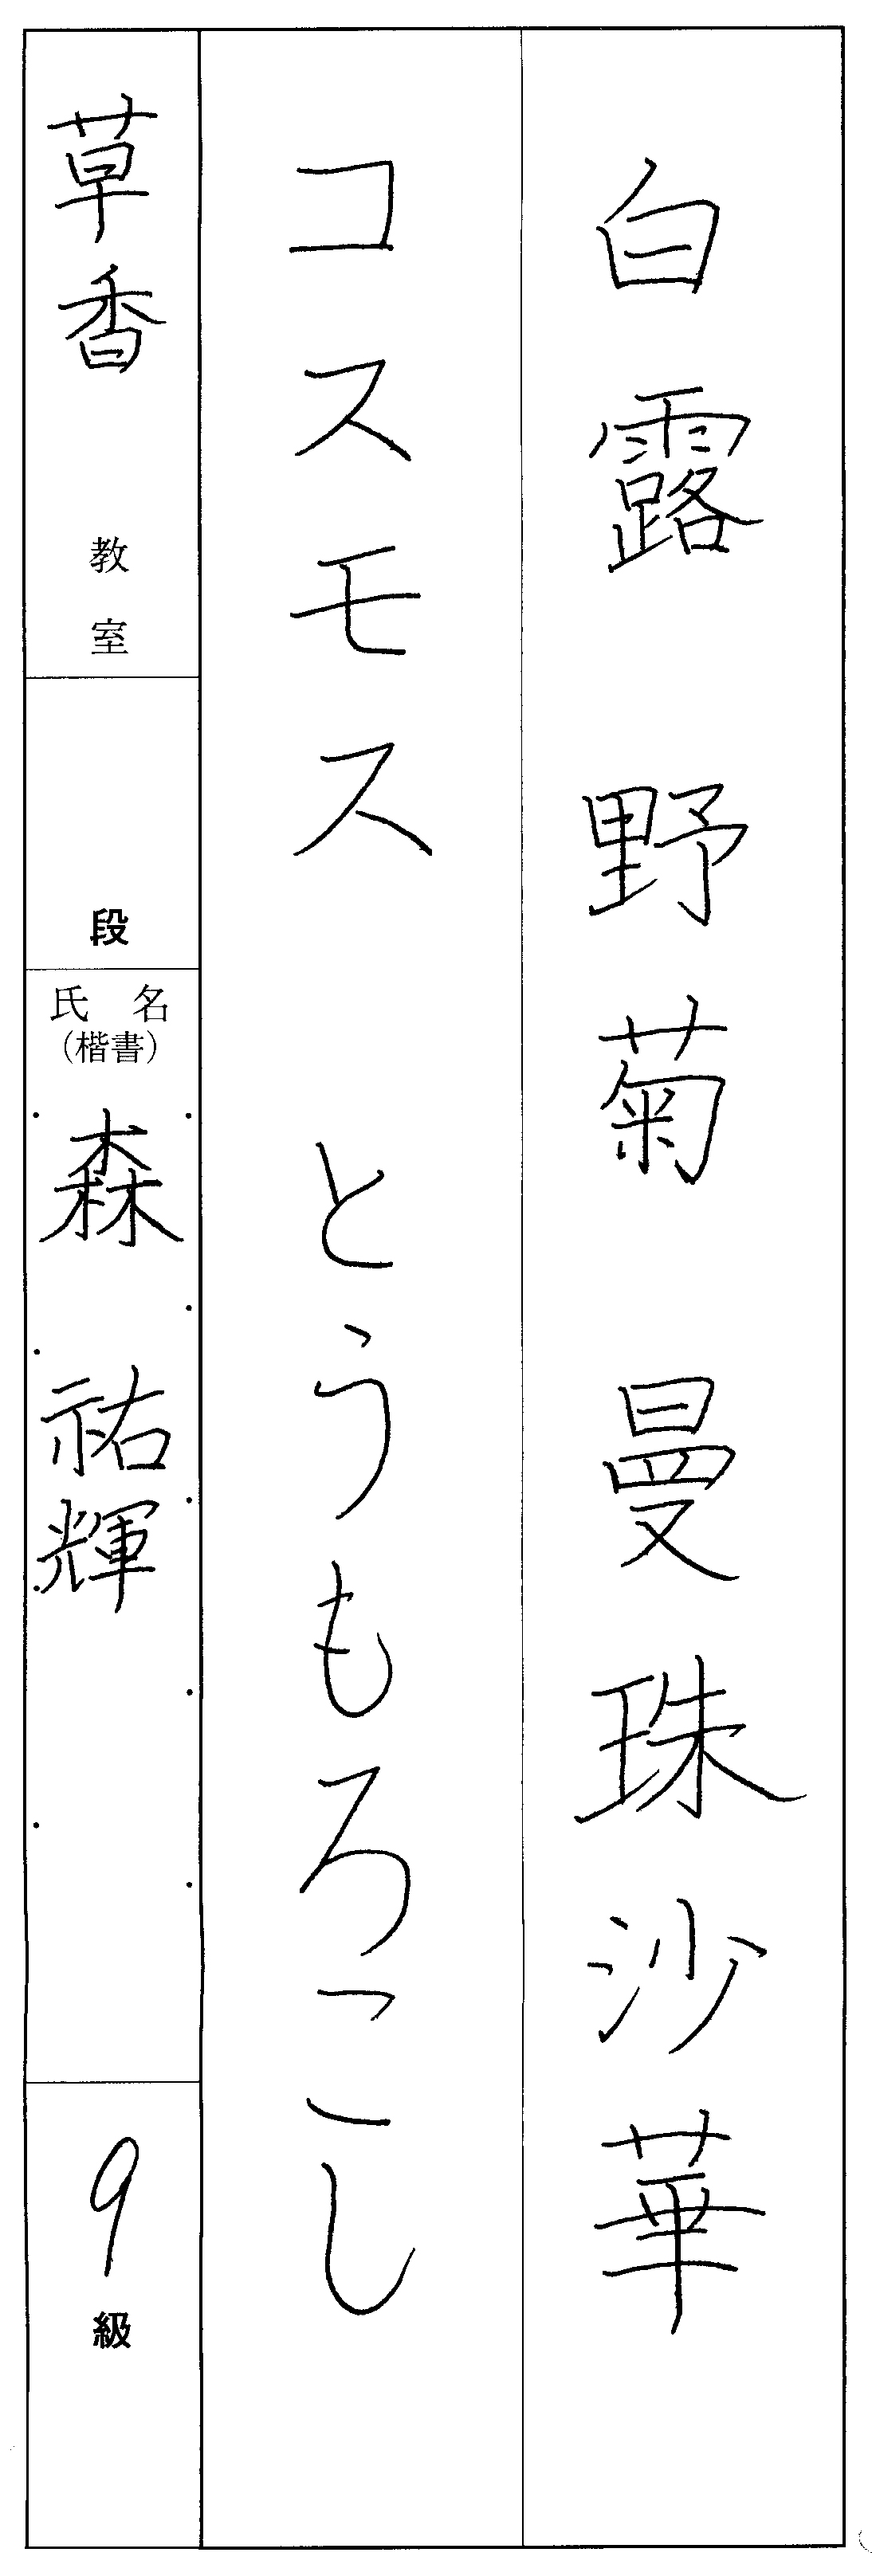 白露 野菊 曼珠沙華
コスモス とうもろこし
草香 教室
段
氏名
(楷書)
森 祐輝
9 級